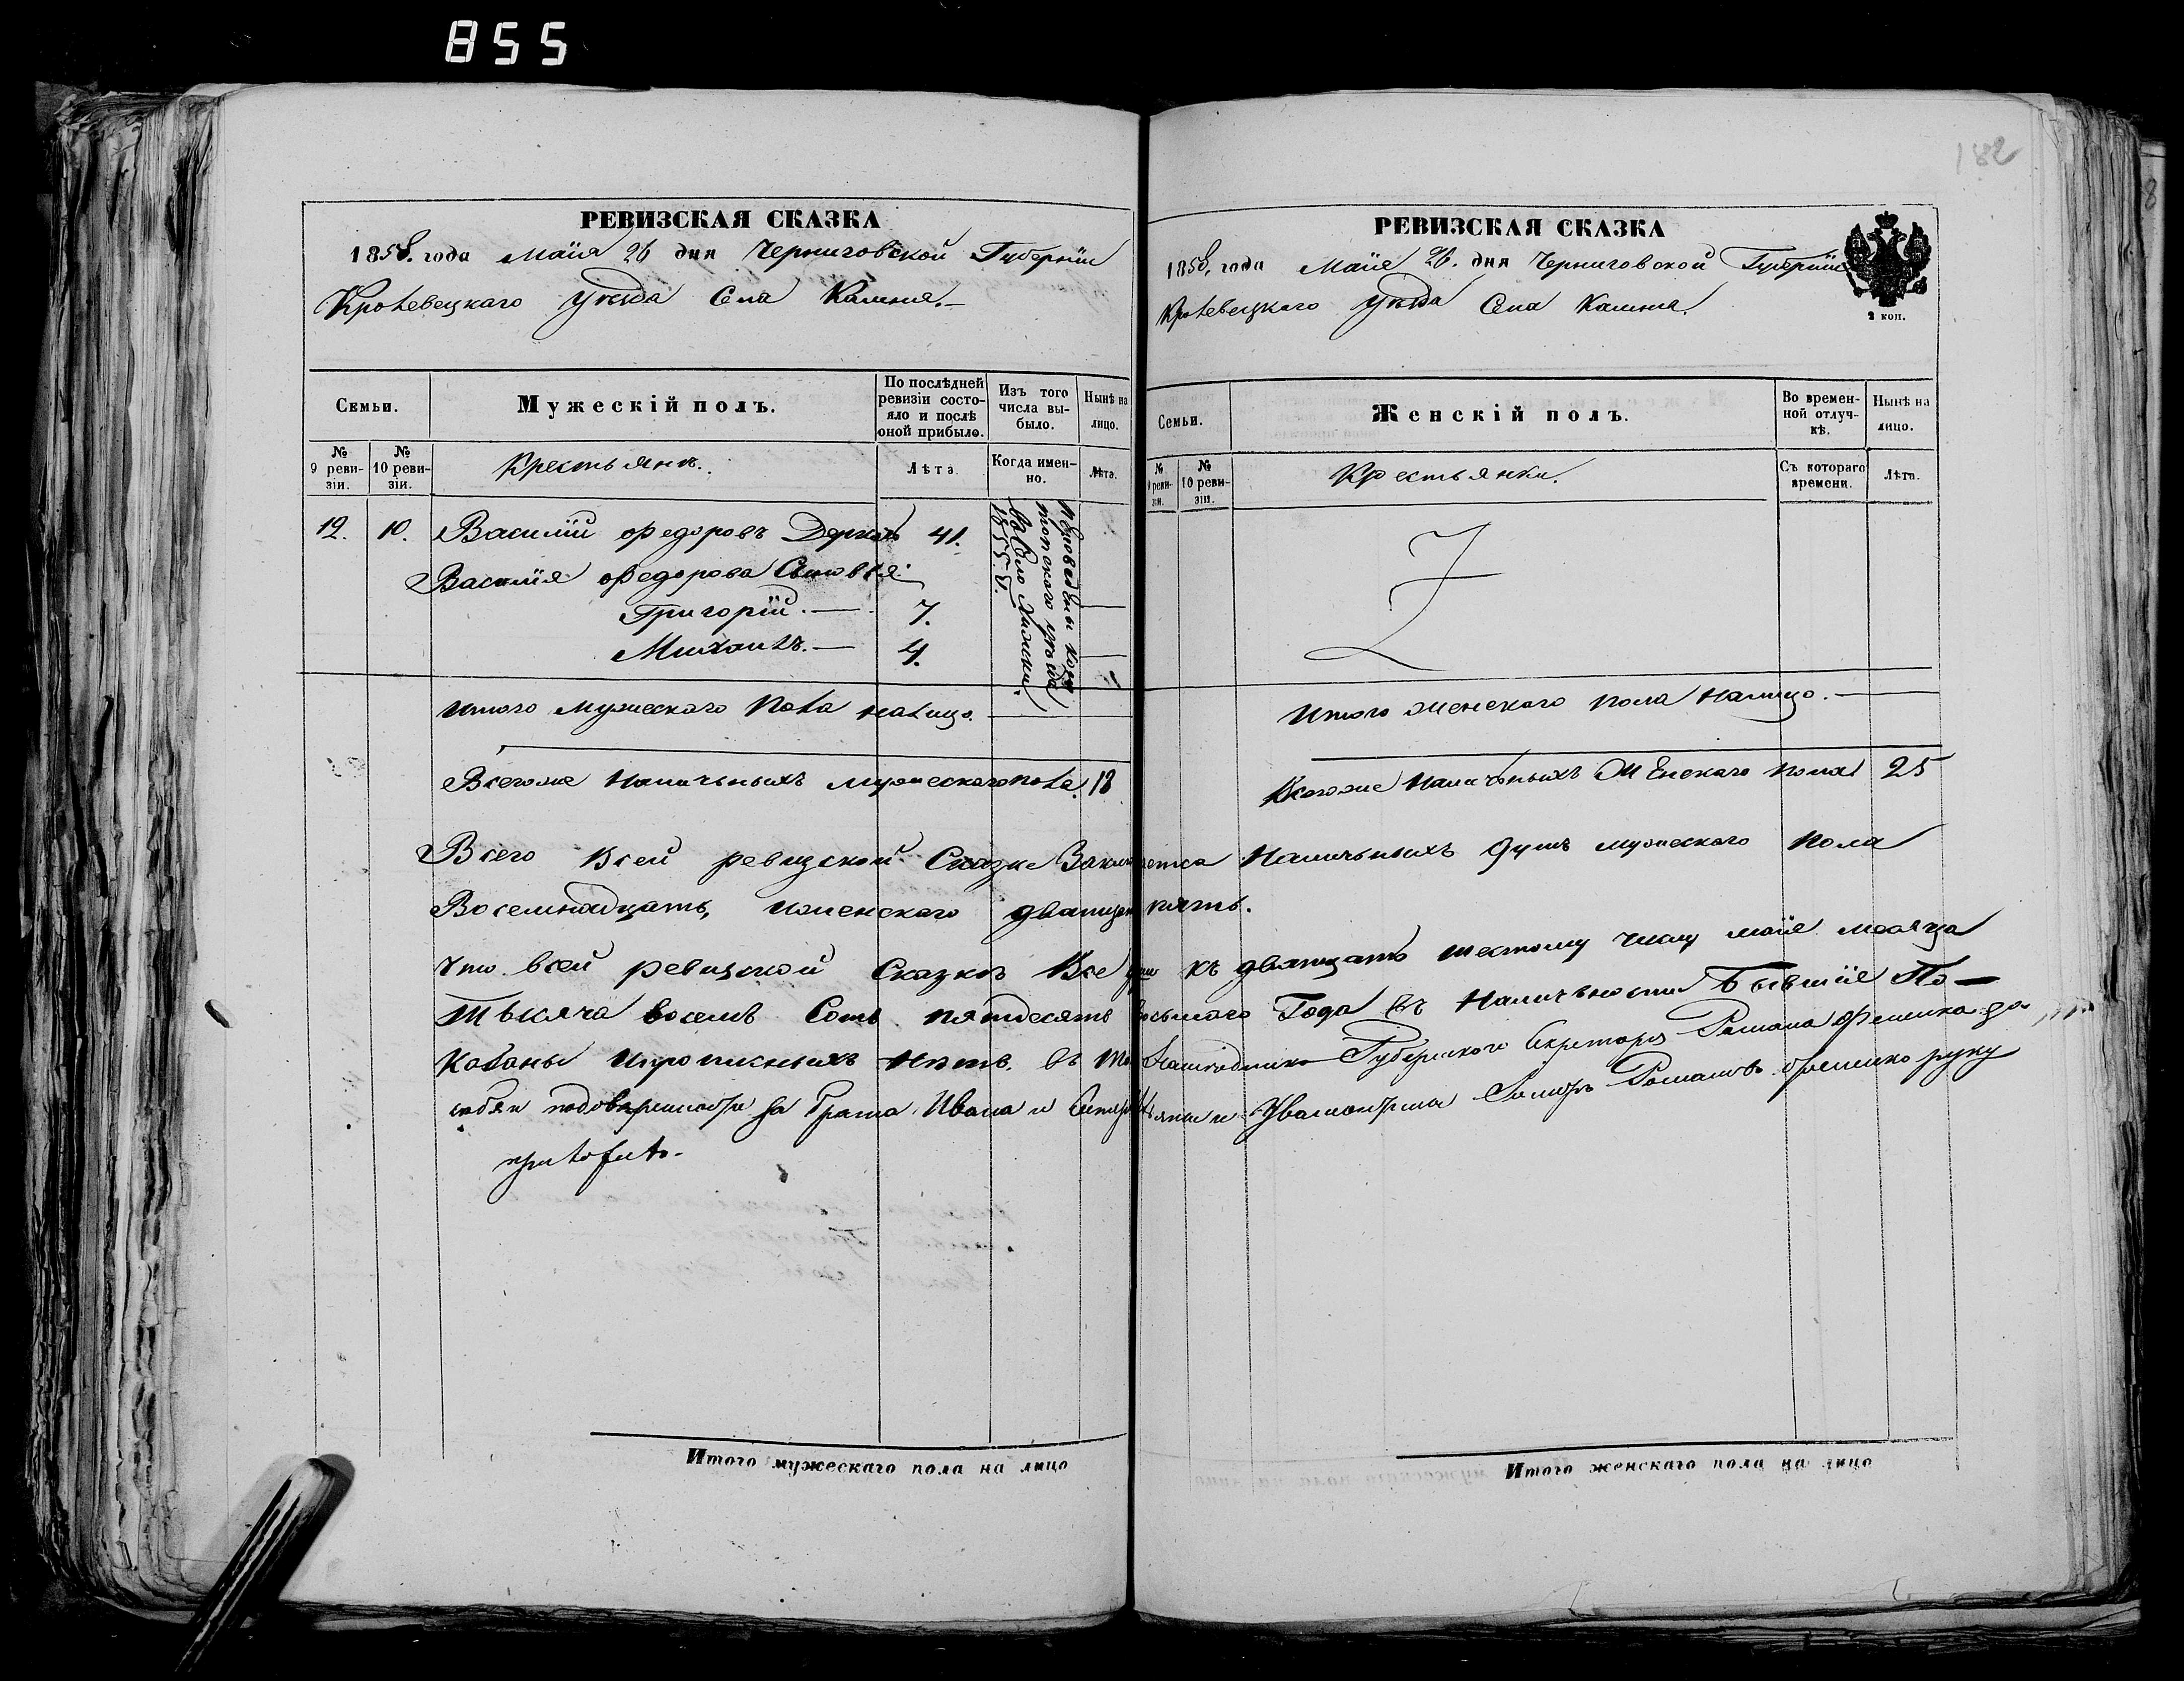 855
182
РЕВИЗСКАЯ СКАЗКА
1858. года Маія 26 дня Черниговской Губерніи
Кролевецкаго уѣзда Села
Семьи.
Мужескій полъ.
По послѣдней ревизіи состояло и послѣ оной прибыло.
Изъ того числа выбыло.
Нынѣ на лицо.
№ 9 ревизіи.
№ 10 ревизіи.
Крестьянъ.
Лѣта.
Когда именно.
Лѣта.
12. 10. Василій Федоровъ 41.
Василія Федорова Сыновья:
Григорій. — 7.
Михаилъ. — 4.
въ Село
1855. г.
Итого мужескаго пола налицо. —
Всегоже Наличьныхъ мужескаго пола. 18
РЕВИЗСКАЯ СКАЗКА
1858, года Маія 26. дня Черниговской Губерніи
Кролевецкаго уѣзда Села
2 коп.
Семьи.
Женскій полъ.
Во временной отлучкѣ.
Нынѣ на лицо.
№ 9 ревизіи.
№ 10 ревизіи.
Крестьянки.
Съ котораго времени.
Лѣта.
Итого женскаго пола Налицо. —
Всегоже Наличьныхъ Женскаго пола 25
Всего Всей ревизской Сказке Наличьныхъ душъ мужескаго пола
Восемнадцать, Иженскаго двацать пять.
Что всей ревизской Сказкѣ Все къ двятцать шестому числу маія месяца
Тысяча восемь Сотъ пятдесятъ восьмаго Года въ Наличьности Бывшіе По-
казаны Ипрописныхъ Нѣтъ. въ Губернскаго Секретаря Романа за
за Брата Ивана и руку
приложилъ.
Итого мужескаго пола на лицо
Итого женскаго пола на лицо